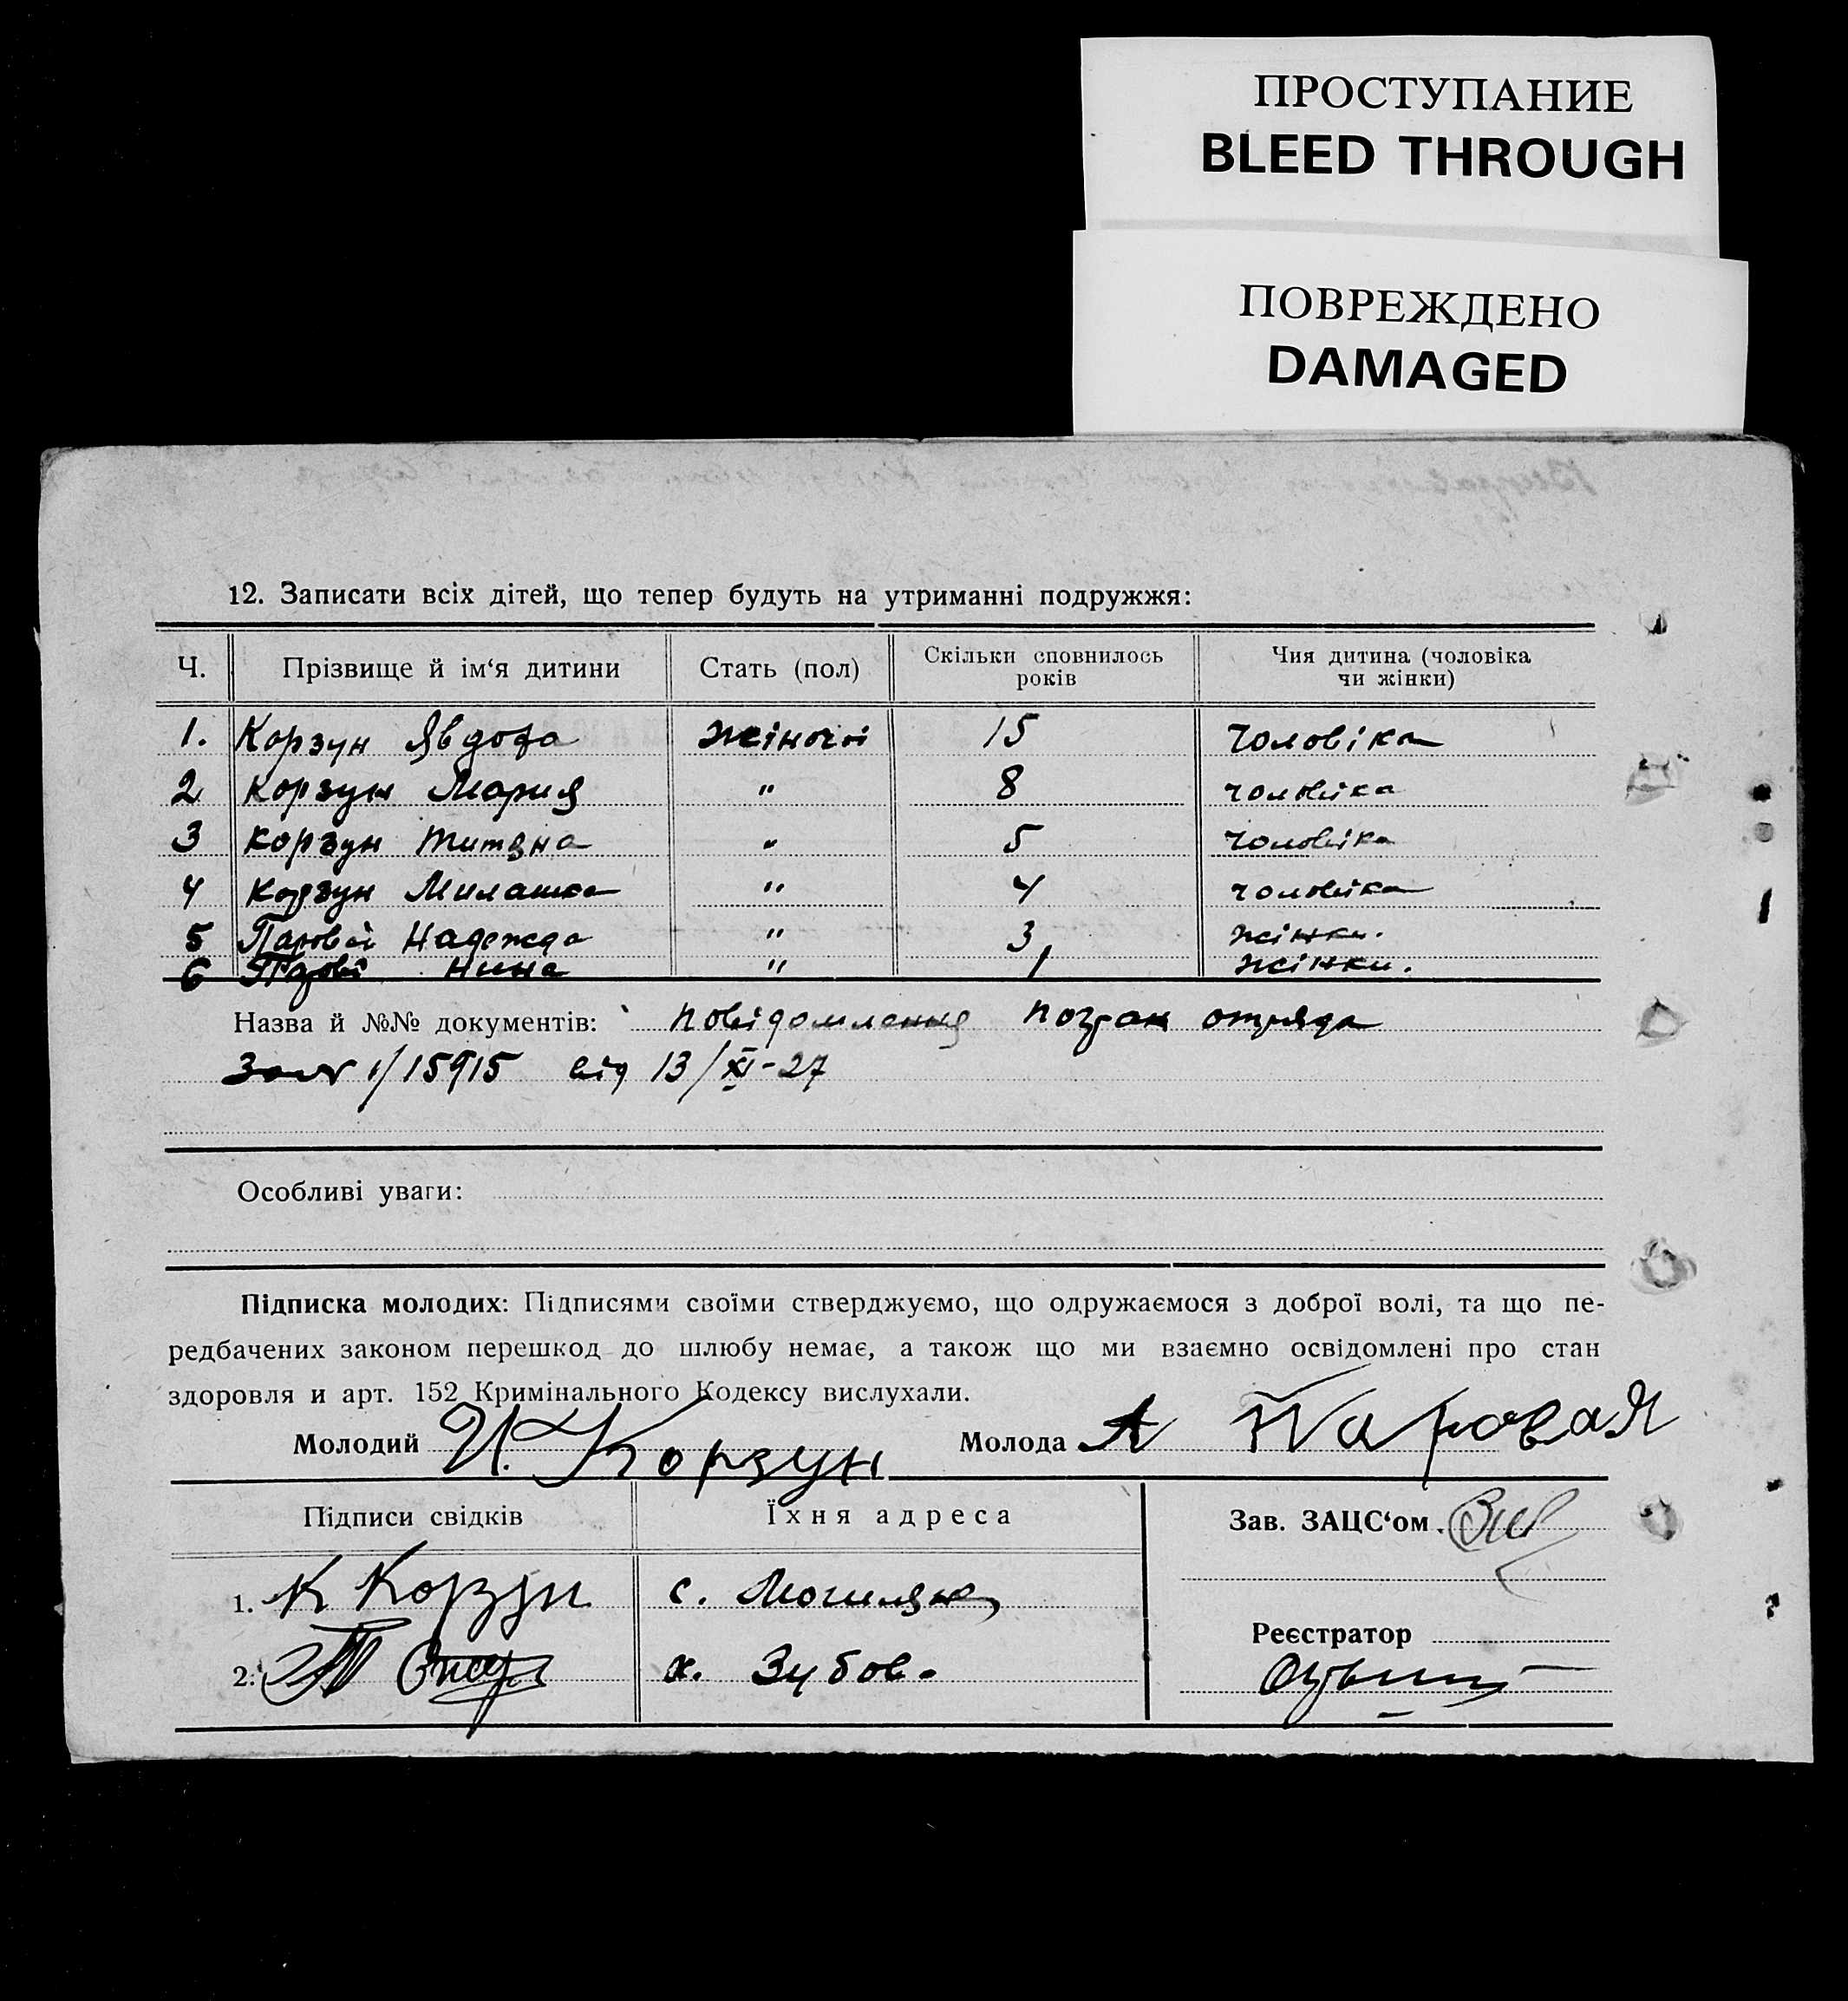 ПРОСТУПАНИЕ
BLEED THROUGH
ПОВРЕЖДЕНО
DAMAGED
12. Записати всіх дітей, що тепер будуть на утриманні подружжя:
Ч. Прізвище й ім‘я дитини Стать (пол) Скільки сповнилось років Чия дитина (чоловіка чи жінки)
1. Корзун Явдоха жіночої 15 чоловіка
2 Корзун Мария " 8 чоловіка
3 Корзун Титяна " 5 чоловіка
4 Корзун Милашка " 4 чоловіка
5 Надежда " 3 жінки.
6 Нина " 1 жінки.
Назва й №№ документів: повідомлення отряда
1/15915 від 13/XI-27
Особливі уваги:
Підписка молодих: Підписями своїми стверджуємо, що одружаємося з доброї волі, та що пе-
редбачених законом перешкод до шлюбу немає, а також що ми взаємно освідомлені про стан
здоровля и арт. 152 Кримінального Кодексу вислухали.
Молодий И. Корзун Молода А Паровая
Підписи свідків Їхня адреса Зав. ЗАЦС‘ом
1. К Корзун с.
Реєстратор
2. х. Зубов.